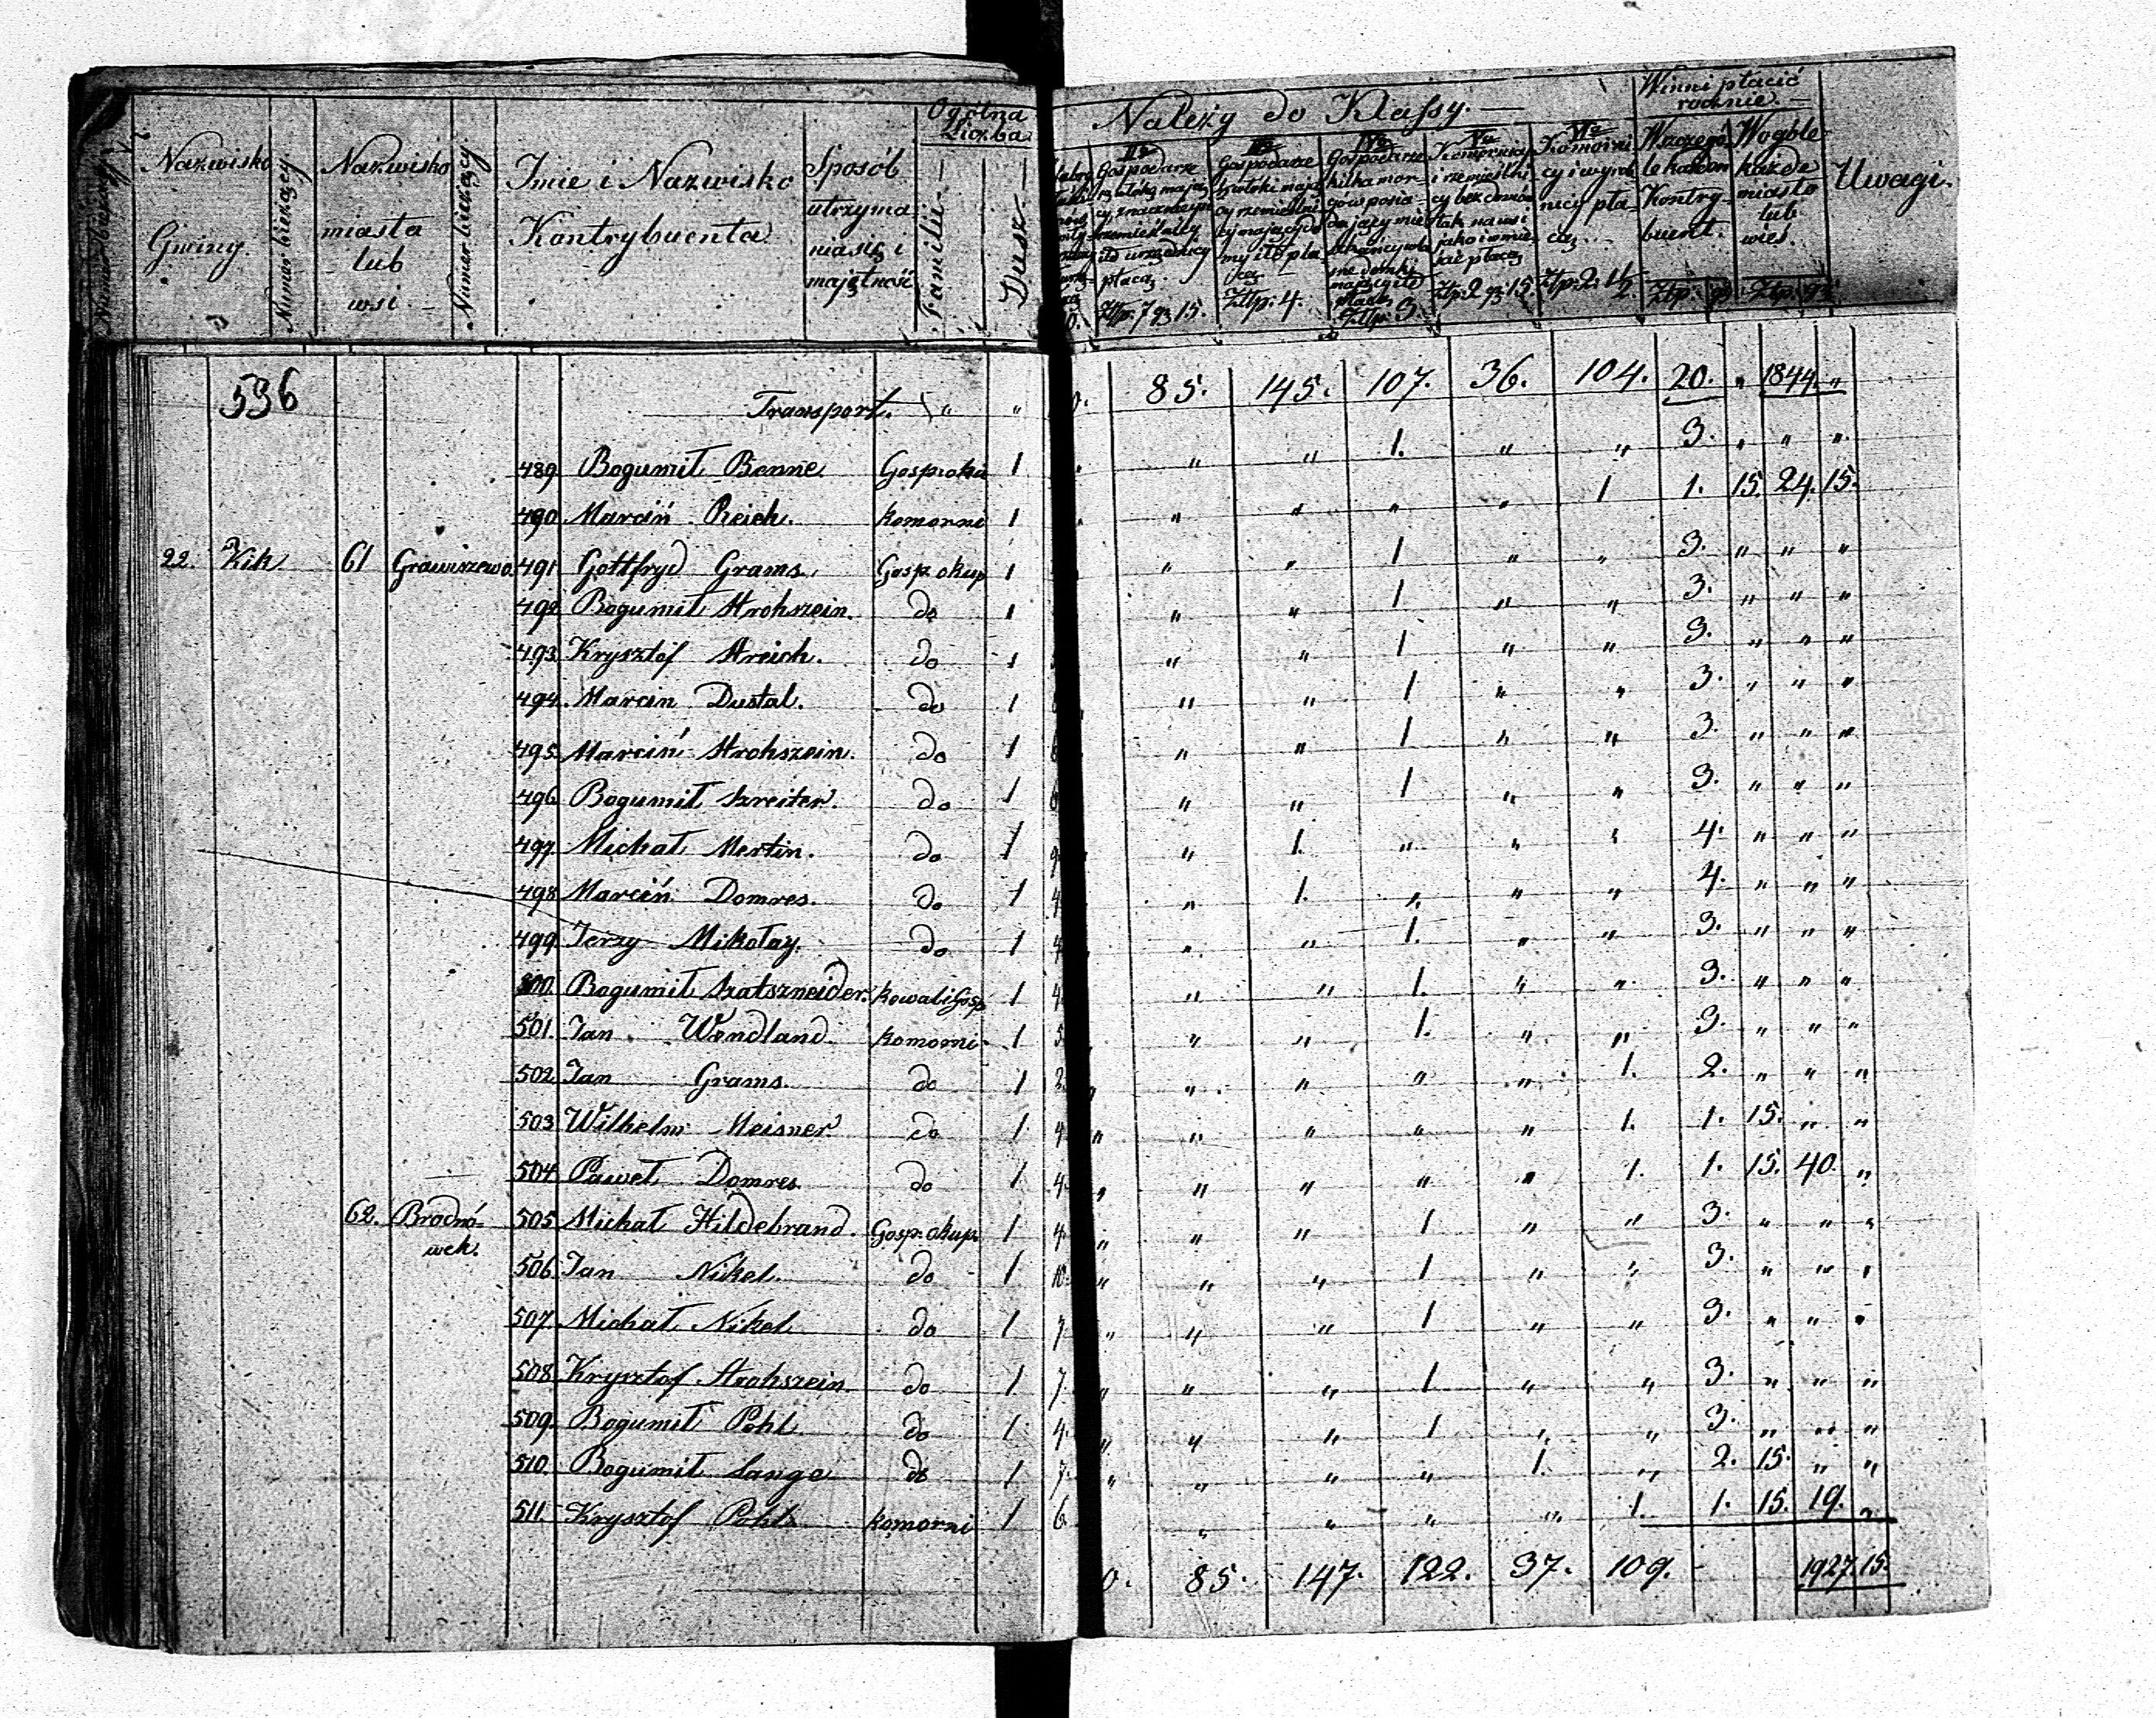 Nazwisko Gminy.
Numer bieżący
Nazwisko miasta lub wsi
Numer bieżący
Imie i Nazwisko Kontrybuenta
Sposób utrzymania się i majętność
Ogólna Liczba
Familii
Dusz
Należy do Klassy.
Winni płacić rocznie.
Uwagi.
Złp. 7 gr 15.
Złp. 4.
Złp. 3.
Złp. 2 gr. 15.
Złp. gr
Złp. gr.
536
Transport. " " 0. 85. 145. 107. 36. 104. 20. " 1844. "
489 Bogumił Benne Gosp: oku 1 " " 1. " " 3. " " "
490 Marcin Reich. komorni 1 " " " " 1 1. 15. 24. 15.
22. Kik 61 Grawiszewo. 491 Gottfryd Grams. Gosp okup 1 " " 1 " " 3. " " "
492 Bogumił Strohszein. do 1 " " 1 " " 3. " " "
493 Krysztof Streich. do 1 " " 1 " " 3. " " "
494. Marcin Dustal. do 1 " " 1 " " 3. " " "
495. Marcin Strohszein. do 1 6 " " 1 " " 3. " " "
496 Bogumił Szreiter. do 1 6 " " 1 " " 3. " " "
497 Michał Mertin. do 1 9 " 1. " " " 4. " " "
498 Marcin Domres. do 1 4 " 1. " " " 4. " " "
499 Jerzy Mikołay. do 1 4 " " 1. " " 3. " " "
500. Bogumił Szatsznaider. Kowal i Gosp 1 4 " " 1. " " 3. " " "
501. Jan Wendland. komorni 1 5 " " 1. " " 3. " " "
502. Jan Grams. do 1 2. " " " " " 1. 2. " " "
503 Wilhelm Meisner. do 1 4 " " " " " 1. 1. 15. " "
504 Paweł Domres. do 1 4. " " " " " 1. 1. 15. 40. "
62. Brodnówek. 505 Michał Hildebrand. Gosp. okup. 1 4. " " " 1 " " 3. " " "
506. Jan Nikel. do 1 10. " " " 1 " " 3. " " "
507. Michał Nikel do 1 7. " " " 1 " " 3. " " "
508. Krysztof Strohszein. do 1 7. " " " 1 " " 3. " " "
509. Bogumił Pohl. do 1 4. " " " 1 " " 3. " " "
510. Bogumił Lange do 1 7. " " " " 1. " 2. 15. " "
511. Krysztof Pohl. komorni 1 6 " " " " 1. 1. 15. 19. "
0. 85. 147. 122. 37. 109. 1927. 15.